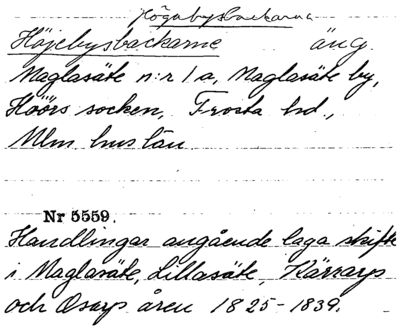 Högabysbackarna
Höjebysbackarne äng.
Maglasäte n:r 1 a, Maglasäte by,
Höörs socken, Frosta hd.,
Mlm. hus län.
Nr 5559.
Handlingar angående laga skifte
i Maglasäte, Lillasäte, Kärrarp
och Osarp åren 1825-1839.